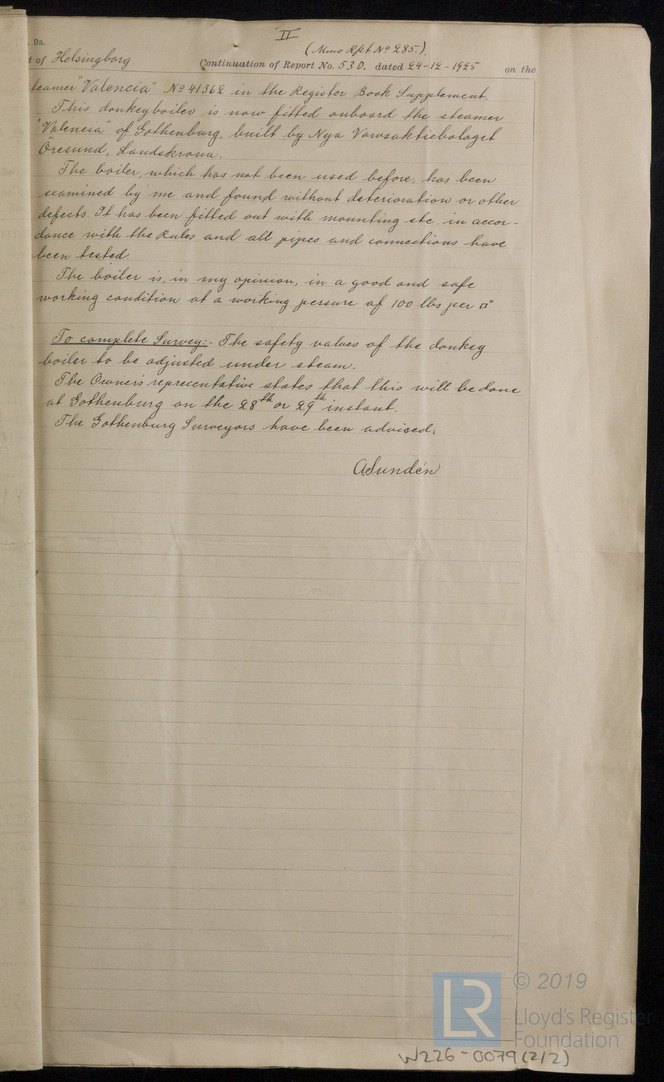 II
(Mmo Rpt No 285).
9a.
t of Helsingborg Continuation of Report No. 53D. dated 24-12-1925 on the
teamer "Valencia" No 41362 in the Register Book Supplement.
This donkeyboiler is now fitted onboard the steamer
"Valencia" of Gothenburg, built by Nya Varvsaktiebolaget
Öresund, Landskrona.
The boiler, which has not been used before, has been
examined by me and found without deterioration or other
defects. It has been fitted out with mounting etc. in accor-
dance with the Rules and all pipes and connections have
been tested.
The boiler is, in my opinion, in a good and safe
working condition at a working persure of 100 lbs per □"
To complete Survey:- The safety values of the donkey
boiler to be adjusted under steam.
The Owner's representative states that this will be done
at Gothenburg on the 28th or 29th instant.
The Gothenburg Surveyors have been advised.
ASundén
© 2019
LR
Lloyd's Register
Foundation
W226-0079(2/2)